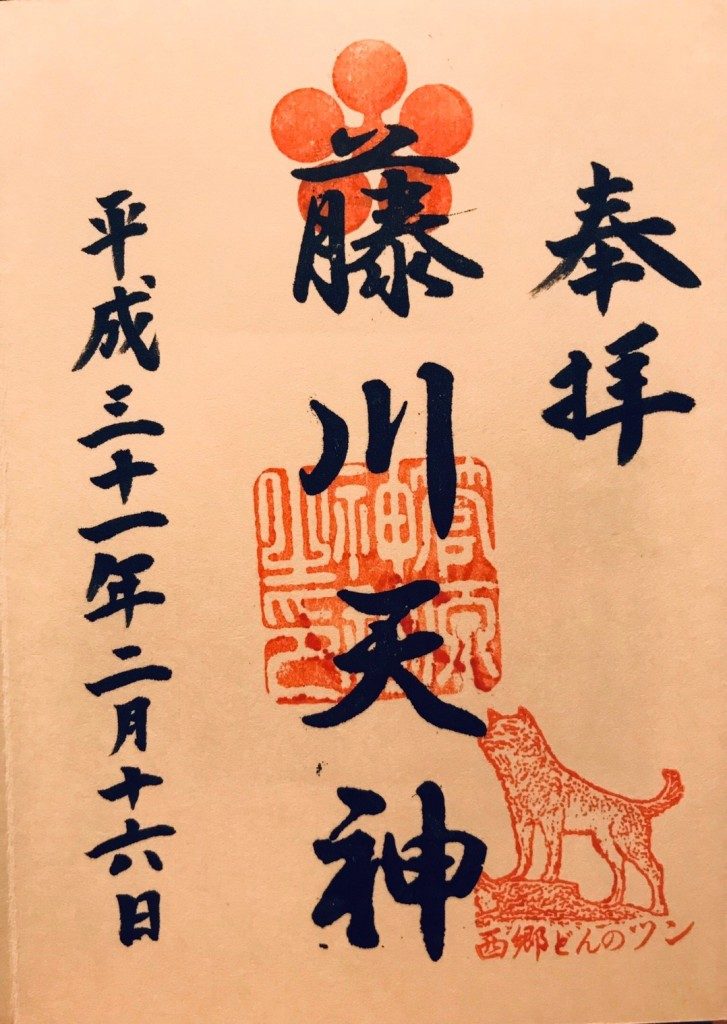 奉拝
藤川天神
平成三十一年二月十六日
西郷どんのツン